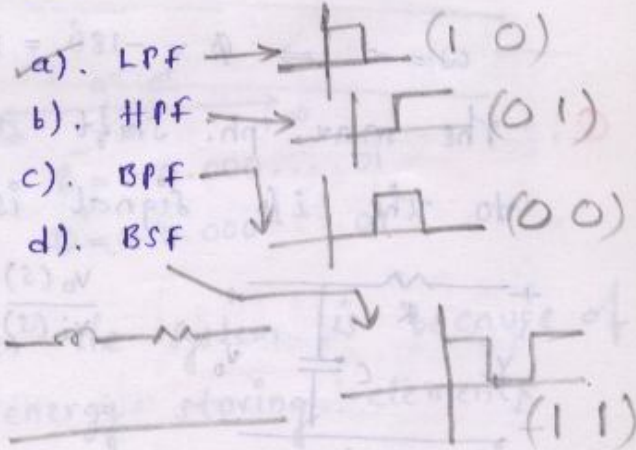 a). LPF → (1 0)
b). HPF → (0 1)
c). BPF (0 0)
d). BSF
(1 1)